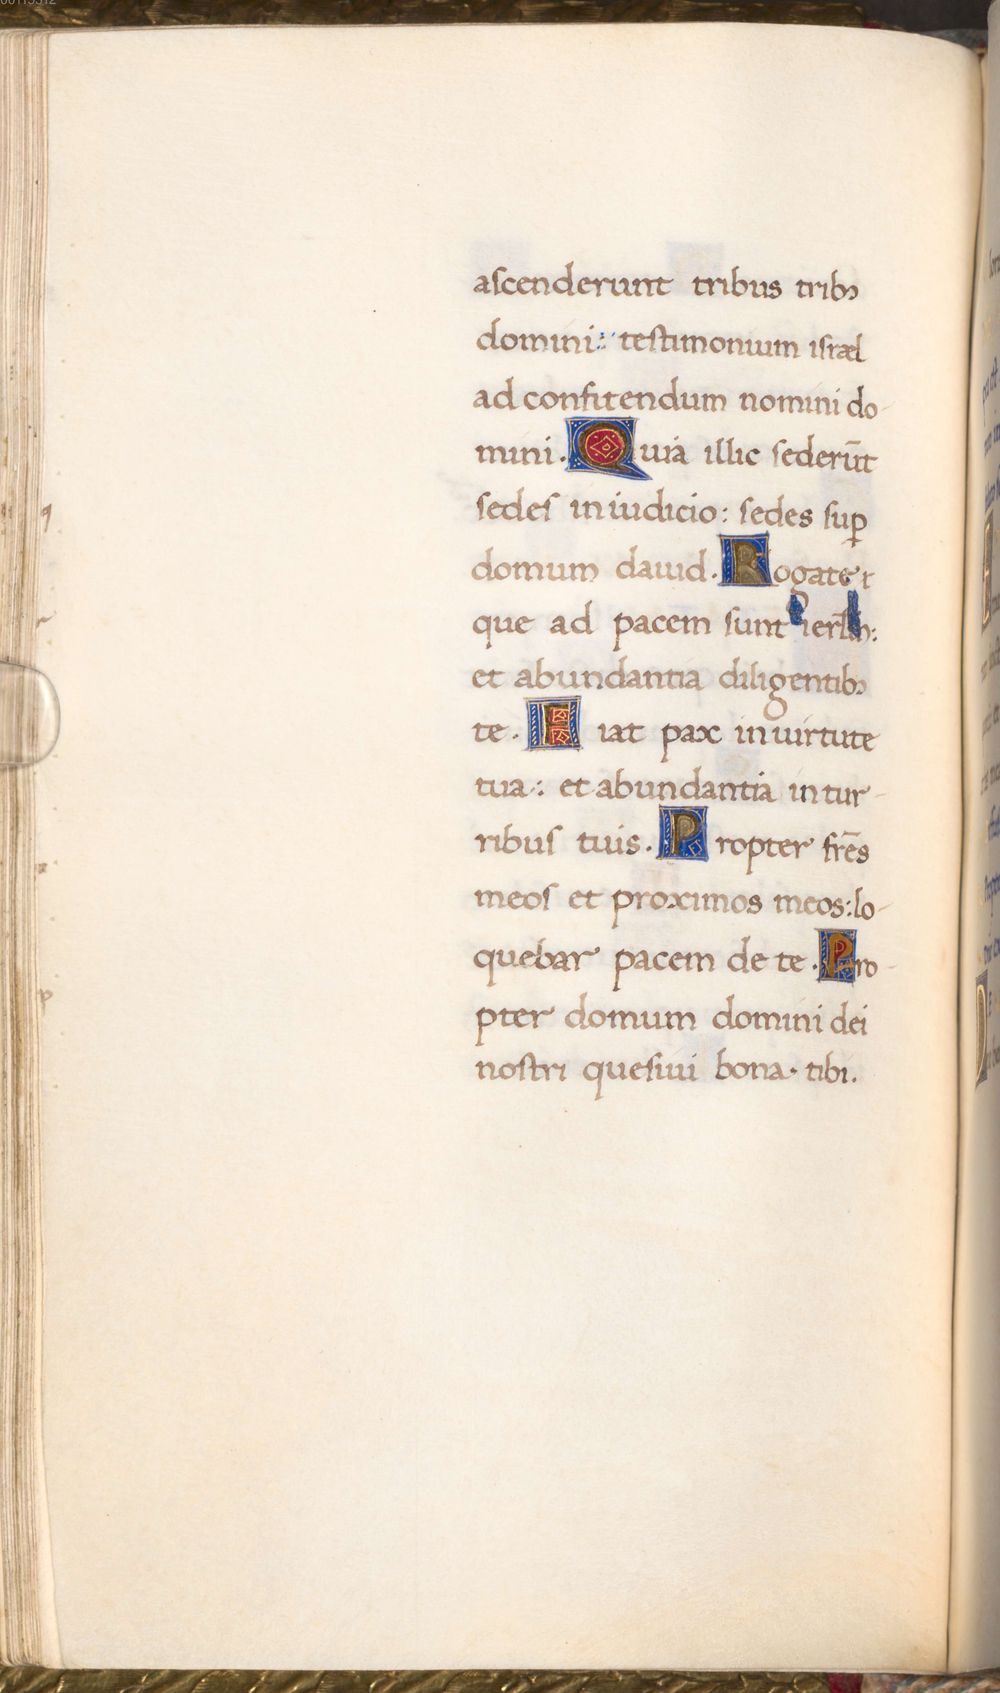 ascenderunt tribus tribꝫ
domini: testimonium israel
ad confitendum nomini do-
mini. Quia illic sederūt
sedes in iudicio: sedes suꝑ
domum dauid. Rogate
que ad pacem sunt ierlm̄:
et abundantia diligentibꝫ
te. Fiat pax in uirtute
tua: et abundantia in tur-
ribus tuis. Propter fr̄es
meos et proximos meos: lo-
quebar pacem de te. Pro-
pter domum domini dei
nostri quesiui bona tibi.